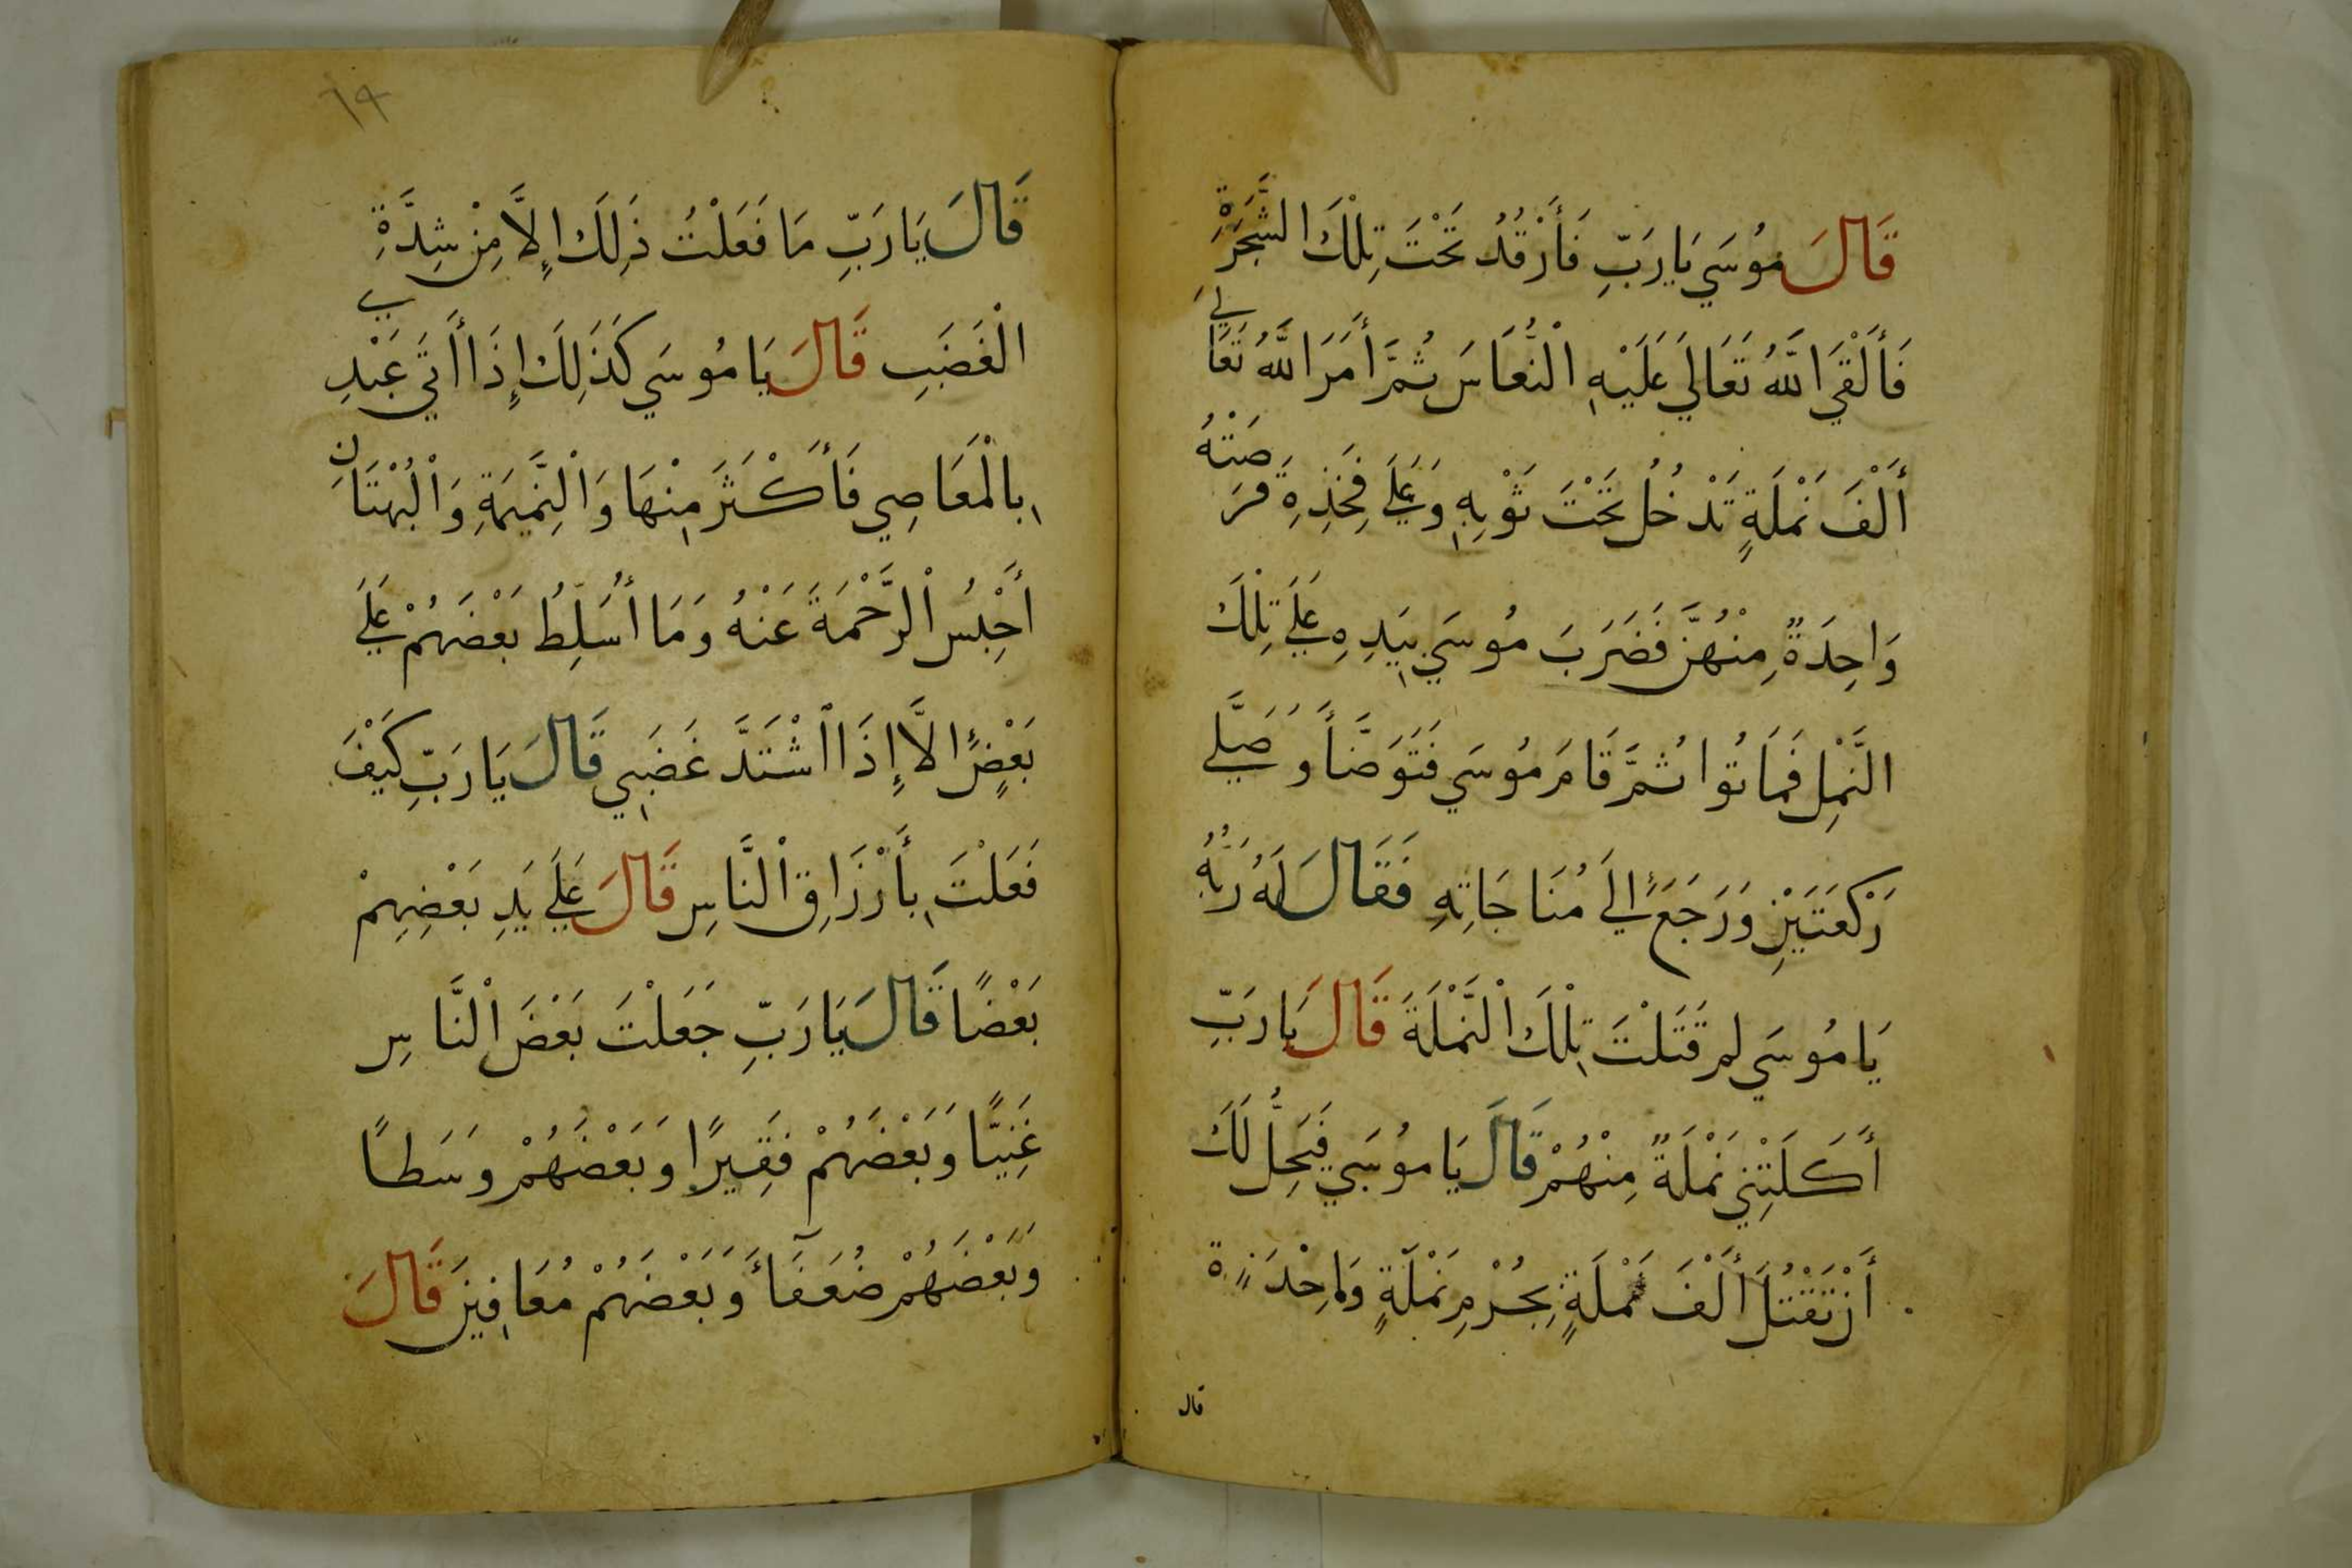 قَالَ مُوسَي يَا رَبِّ فَأَرْقُدُ تَحْتَ تِلْكَ الشَّجَرَةِ
فَأَلْقَي اللَّهُ تَعَالَي عَلَيْهِ الْنُّعَاسَ ثُمَّ أَمَرَ اللَّهُ تَعَالَي
أَلْفَ نَمْلَةٍ تَدْخُلُ تَحْتَ ثَوْبِهِ وَعَلَي فَخِذِهِ قَرَصَتْهُ
وَاحِدَةٌ مِنْهُنَّ فَضَرَبَ مُوسَي بِيَدِهِ عَلَي تِلْكَ
النَّمْلِ فَمَاتُوا ثُمَّ قَامَ مُوسَي فَتَوَضَّأَ وَصَلَّي
رَكْعَتَيْنِ وَرَجَعَ إِلَي مُنَاجَاتِهِ فَقَالَ لَهُ رَبُّهُ
يَا مُوسَي لم قَتَلْتَ تِلْكَ الْنَّمْلَةَ قَالَ يَا رَبِّ
أَكَلَتْنِي نَمْلَةٌ مِنْهُمْ قَالَ يَا مُوسَي فَيَحِلُّ لَكَ
أَنْ تَقْتُلَ أَلْفَ نَمْلَةٍ بِجُرْمِ نَمْلَةٍ وَاحِدَةٍ
قال
٦٩
قَالَ يَا رَبِّ مَا فَعَلْتُ ذَلِكَ إِلاَّ مِنْ شِدَّةِ
الْغَضَبِ قَالَ يَا مُوسَي كَذَلِكَ إِذَا أَتَي عَبْدِي
بِالْمَعَاصِي فَأَكْثَرَ مِنْهَا وَالْنَّمِيمَةِ وَالْبُهْتَانِ
أَحْبِسُ الْرَّحْمَةَ عَنْهُ وَمَا أُسَلِّطُ بَعْضَهُمْ عَلَي
بَعْضٍ إِلاَّ إِذَا اشْتَدَّ غَضَبِي قَالَ يَا رَبِّ كَيْفَ
فَعَلْتَ بِأَرْزَاقِ الْنَّاسِ قَالَ عَلَي يَدِ بَعْضِهِمْ
بَعْضًا قَالَ يَا رَبِّ جَعَلْتَ بَعْضَ الْنَّاسِ
غَنِيًّا وَبَعْضَهُمْ فَقِيرًا وَبَعْضَهُمْ وَسَطاً
وَبَعْضَهُمْ ضُعَفَآءَ وَبَعْضَهُمْ مُعَافِينَ قَالَ